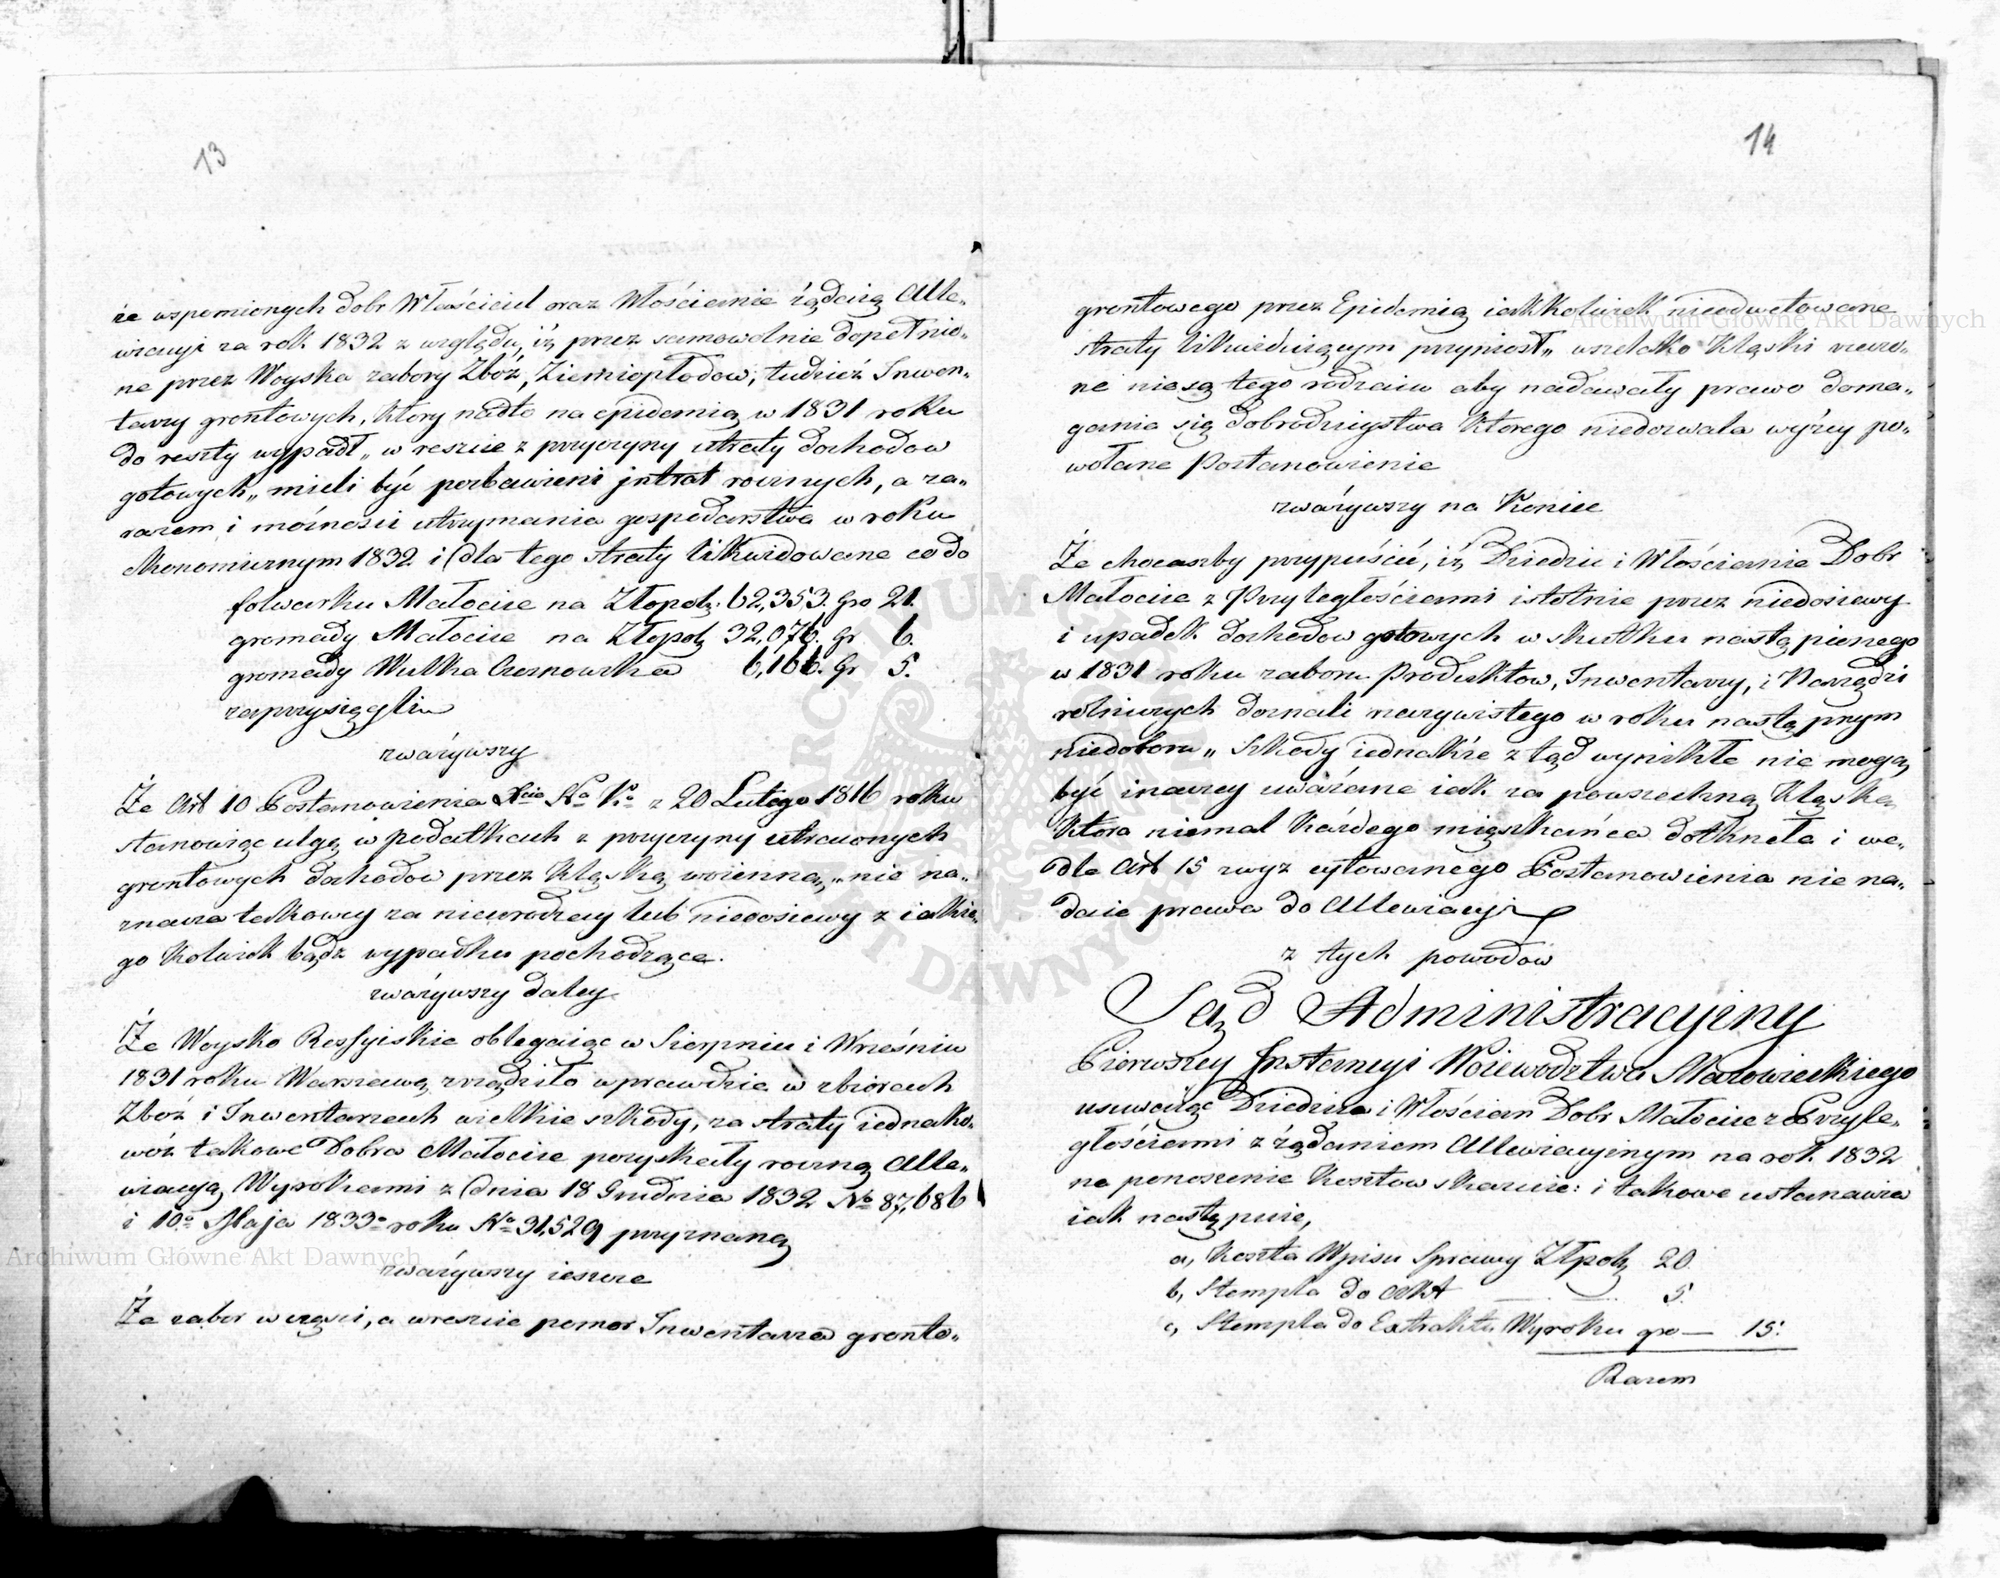 13
że wspomionych dobr Właściciel oraz Włościanie żądaią Alle-
wiacyi za rok 1832 z względu, iż przez samowolnie dopełnio-
ne przez Woyska zabory Zbóż, Ziemiopłodow, tudzież Inwen-
tarzy grontowych, który nadto na epidemią w 1831 roku
do reszty wypadł, w reszcie z przyczyny utraty dochodow
gotowych, mieli być pozbawieni jntrat rocznych, a za-
razem i możności utrzymania gospodarstwa w roku
ekonomicznym 1832. i dla tego straty likwidowane co do
folwarku Małocice na Złopols: 62,353. gro 21.
gromady Małocice na Złopols 32,076. gr 6.
gromady Wulka Czosnowska 6,166. Gr 5.
zaprzysięgli
zważywszy
Że Art 10 Postanowienia Xcia Na Ka z 20 Lutego 1816 roku
stanowiąc ulgę w podatkach z przyczyny utraconych
grontowych dochodow przez klęskę woienną, nie na-
znacza takowey za nieurodzay lub niedosiewy z iakie-
go kolwiek bądz wypadku pochodzące.
zważywszy daley
Że Woysko Rossyiskie oblegaiąc w Sierpniu i Wrześniu
1831 roku Warszawę, zrządziło wprawdzie w zbiorach
Zbóż i Inwentarzach wielkie szkody, za straty iednako-
wóż takowe Dobra Małocice pozyskały roczną Alle-
wiacyą Wyrokami z dnia 18 Grudnia 1832 No 87,686
i 10o Maja 1833o roku No 31,529 przyznaną
zważywszy ieszcze
Że zabor w części, a wreszcie pomor Inwentarza gronto-
14
grontowego przez Epidemią iakkolwiek nieodwetowane
straty likwiduiącym przyniosł, wszelako klęski rzeczo-
ne nie są tego rodzaiu aby nadawały prawo doma-
gania się dobrodzieystwa którego niedozwala wyżey po-
wołane Postanowienie
zważywszy na koniec
Że chociażby przypuścić, iż Dziedzic i Włościanie Dobr
Małocice z Przyległościami istotnie przez niedosiewy
i upadek dochodow gotowych w skutku nastąpionego
w 1831 roku zaboru Produktow, Inwentarzy, i Narzędzi
rolniczych doznali rzeczywistego w roku nastąpnym
niedoboru, Szkody iednakże z tąd wynikłe nie mogą
być inaczey uważane iak za powszechną klęskę
która niemal każdego mięszkańca dotknęła i we-
dle Art 15 zwyz cytowanego Postanowienia nie na-
daie prawa do Allewiacyi
z tych powodów
Sąd Administracyjny
Pierwszey Instancyi Woiewodztwa Mazowieckiego
usuwaiąc Dziedzica i Włościan Dobr Małocice z Przyle-
głościami z żądaniem Allewiacyinym na rok 1832
na ponoszenie kosztow skazuie: i takowe ustanawia
iak następuie,
a, Koszta Wpisu Sprawy Złpols 20.
b, Stempla do Akt 5.
c, Stempla do Extraktu Wyroku gro — 15:
Razem
Archiwum Główne Akt Dawnych
Archiwum Główne Akt Dawnych
ARCHIWUM GŁÓWNE AKT DAWNYCH